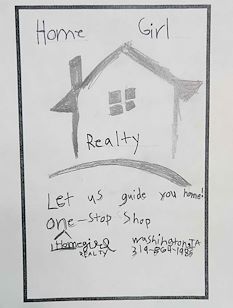 Home Girl
Realty
Let us guide you home!
one-Stop Shop
Homegirl
REALTY
washington, IA
319-864-1980